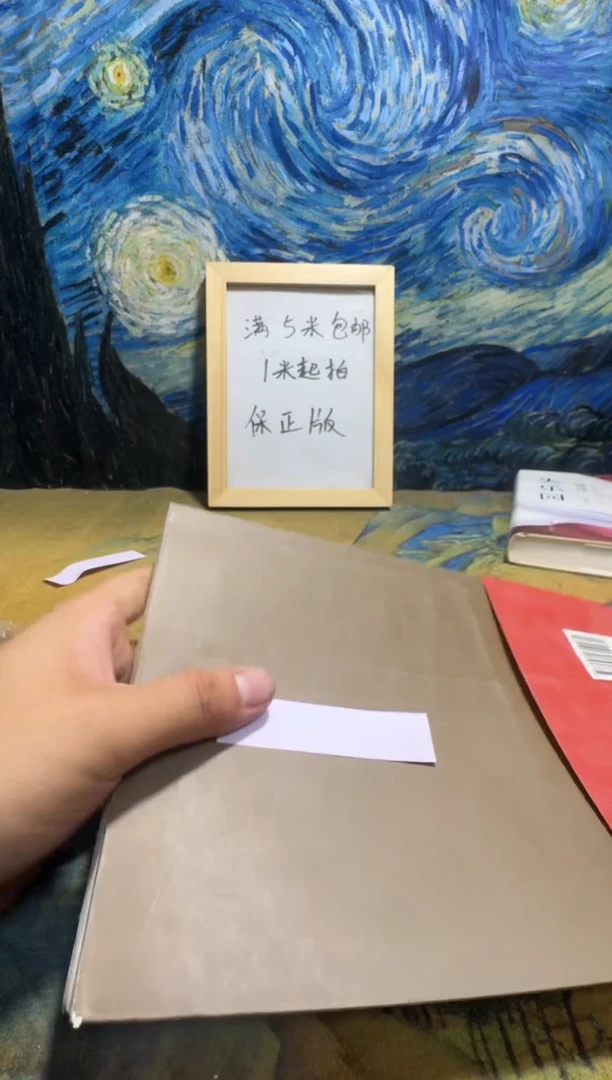 满5米包邮
1米起拍
保正版
失乐园